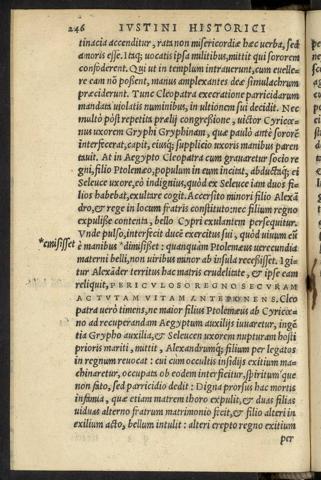 246 IVSTINI HISTORICI
tinacia accenditur, rata non misericordiæ hæc uerba, sed
amoris esse. Itaq; uocatis ipsa militibus, mittit qui sororem
confoderent. Qui ut in templum intrauerunt, cum euelle-
re eam nõ possent, manus amplexantes deæ simulachrum
præciderunt. Tunc Cleopatra execratione parricidarum
mandata uiolatis numinibus, in ultionem sui decidit. Nec
multò pòst repetita prælij congressione, uictor Cyricæ-
nus uxorem Gryphi Gryphinam, quæ paulò antè sororẽ
interfecerat, capit, eiusq; supplicio uxoris manibus paren
tauit. At in Aegypto Cleopatra cum grauaretur socio re
gni, filio Ptolemæo, populum in eum incitat, abductaq; ei
Seleuce uxore, eò indignius, quòd ex Seleuce iam duos fi-
lios habebat, exulare cogit. Accersito minori filio Alexã
dro, & rege in locum fratris constituto: nec filium regno
expulisse contenta, bello Cypri exulantem persequitur.
Vnde pulso, interfecit ducẽ exercitus sui, quòd uiuum eũ
*emisisset è manibus *dimisisset: quanquàm Ptolemæus uerecundia
materni belli, non uiribus minor ab insula recessisset. Igi
tur Alexãder territus hac matris crudelitate, & ipse eam
reliquit, PERICVLOSO REGNO SECVRAM
AC TVTAM VITAM ANTEPONENS. Cleo
patra uerò timens, ne maior filius Ptolemæus ab Cyricæ-
no ad recuperandam Aegyptum auxilijs iuuaretur, ingẽ
tia Grypho auxilia, & Seleucen uxorem nupturam hosti
prioris mariti, mittit, Alexandrumq; filium per legatos
in regnum reuocat: cui cum occultis insidijs exitium ma-
chinaretur, occupata ob eodem interficitur, spiritum'que
non fato, sed parricidio dedit: Digna prorsus hac mortis
infamia, quæ etiam matrem thoro expulit, & duas filias
uiduas alterno fratrum matrimonio fecit, & filio alteri in
exilium acto, bellum intulit: alteri erepto regno exitium
per